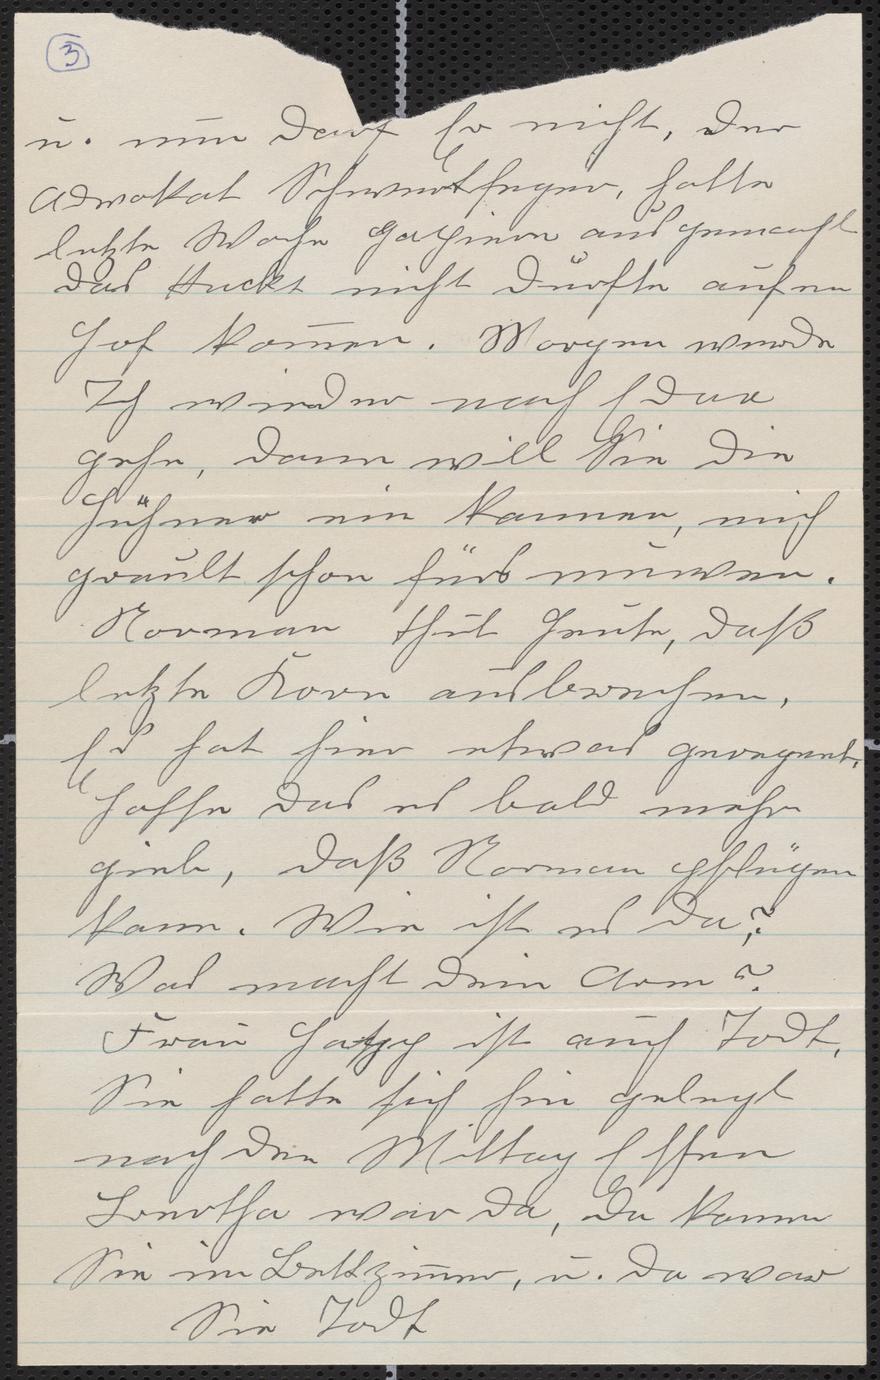 3
u. nun darf Er nicht, der
Advokat Schwertfeger, hatte
letzte Woche ausgemacht
das Huckt nicht dürfte auf en
Hof kom̅en. Morgen werde
Ich wieder nach Eda
gehe, dann will Sie die
Hühner ein kannen, mich
grault schon fürs
Norman thut Heute, daß
letzte Korn ausbrechen,
Es hat hier etwas geregent,
hoffe das es bald mehr
gieb, daß Norman pflügen
kann. Wie ist es da?
Was macht dein Arm?
Frau ist auch Todt,
Sie hatte sich hin gelegt
nach den Mittag Essen
Bertha war da, Da kamm
Sie im Bettzim̅er, u. da war
Sie Todt